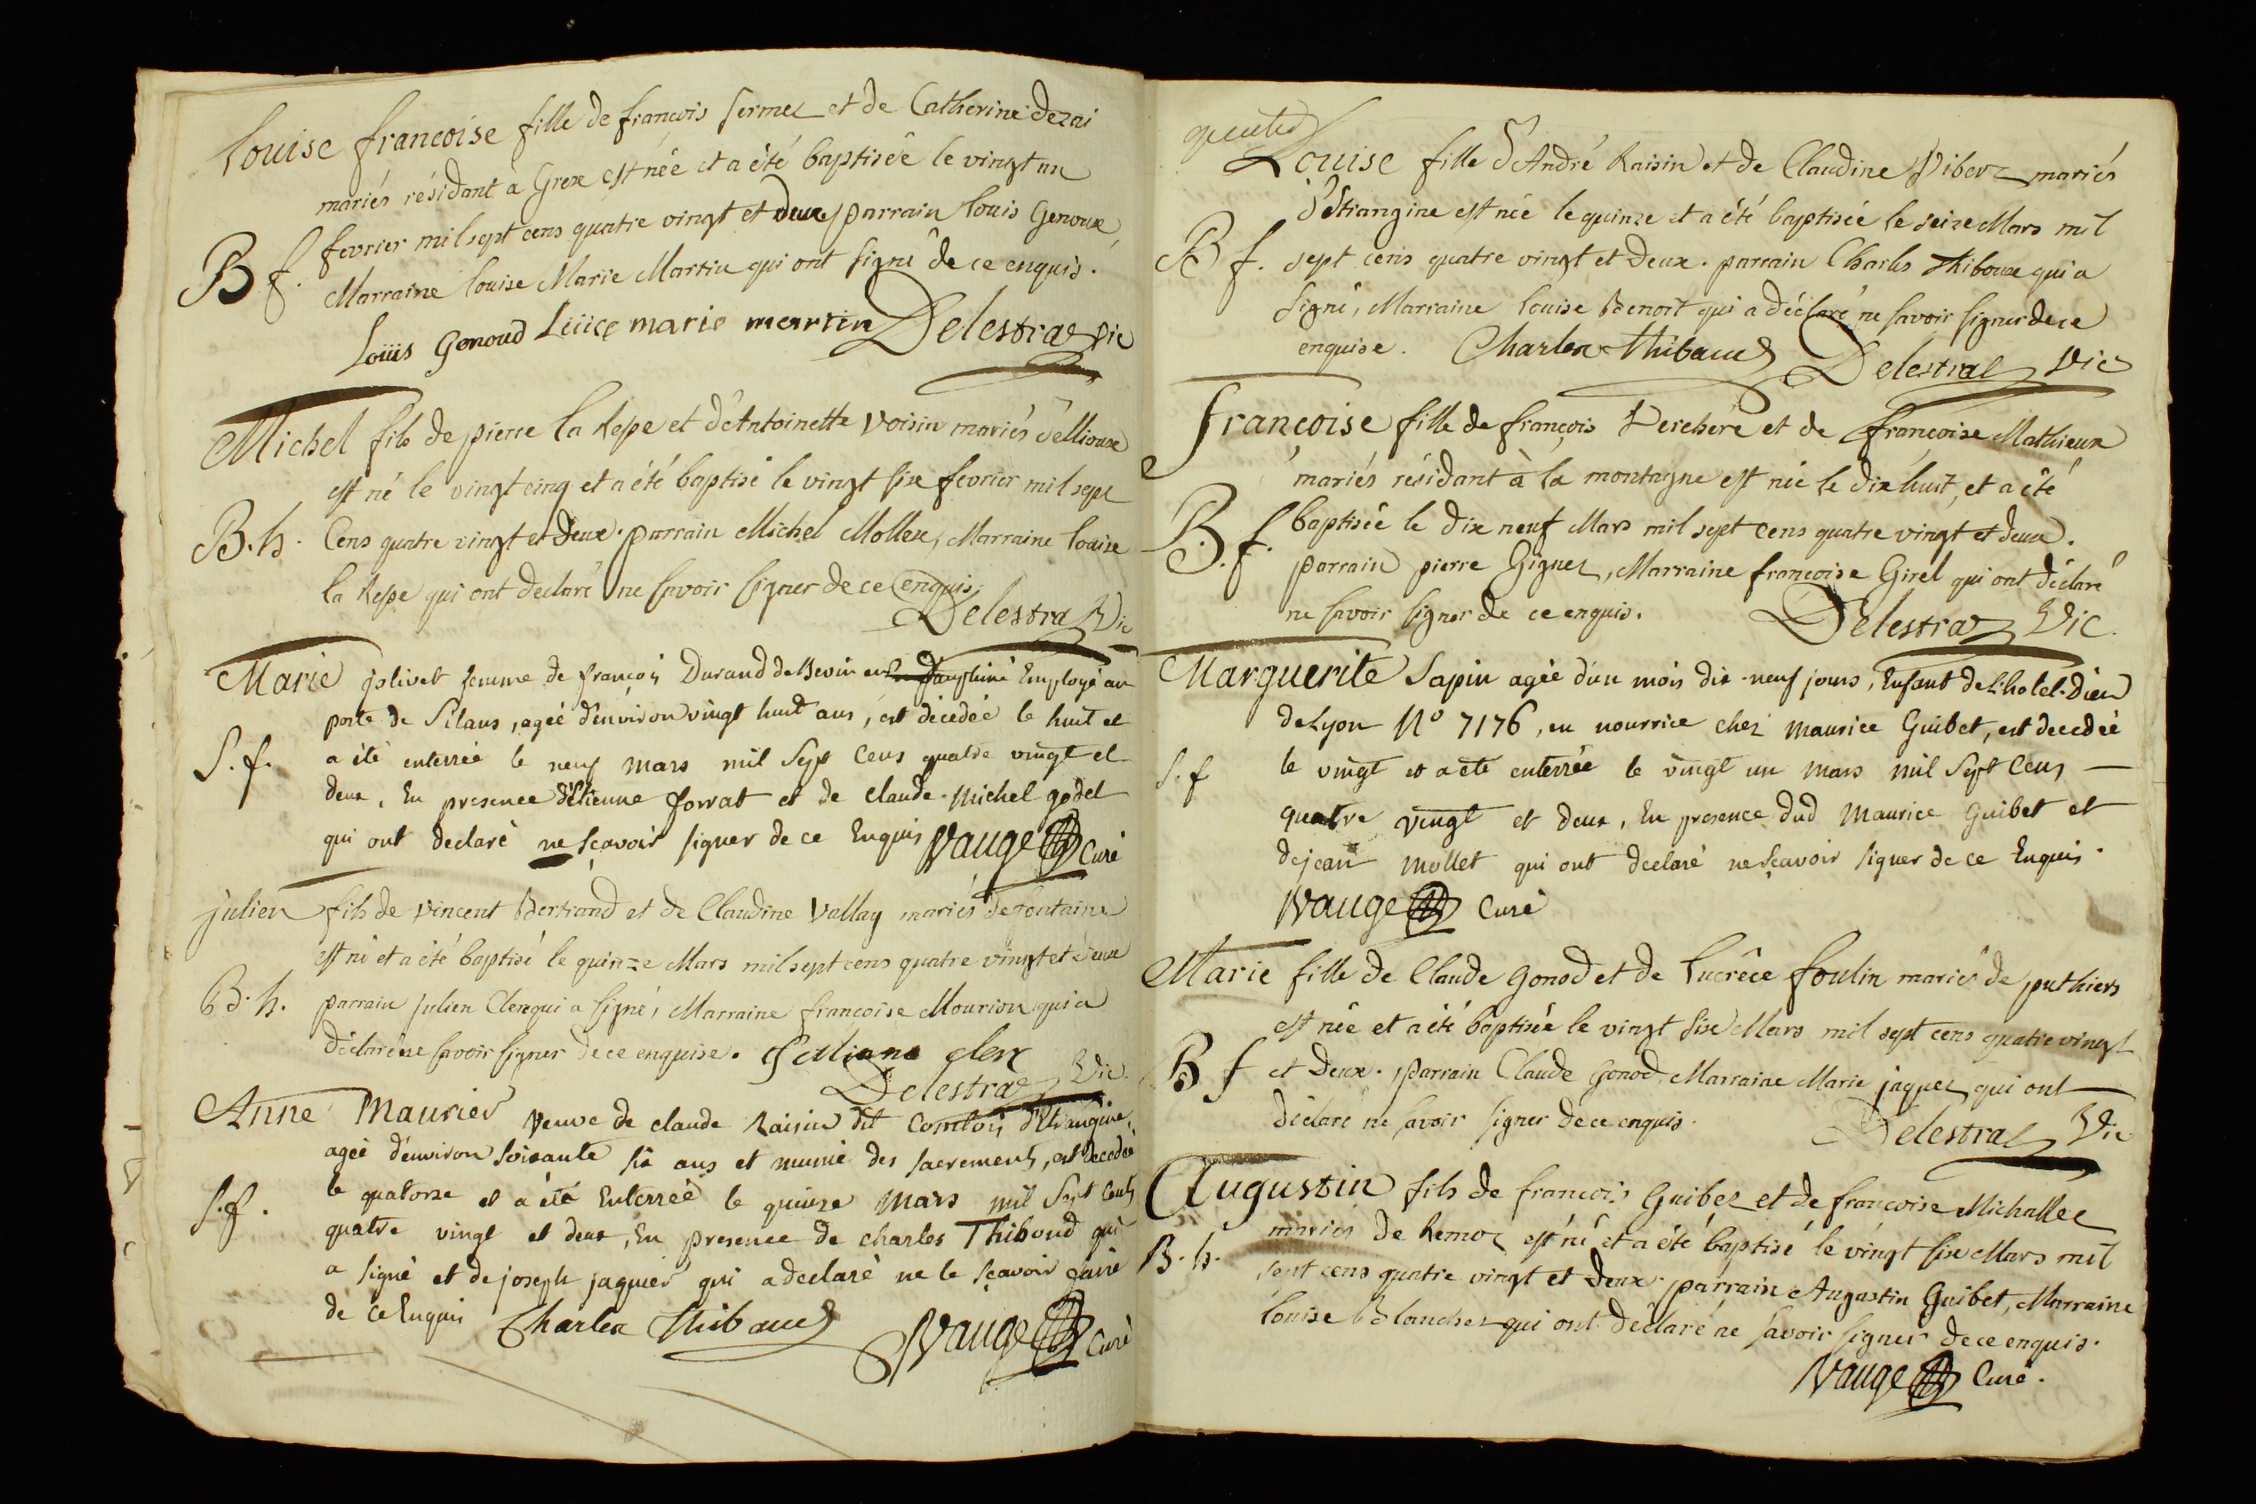 Louise françoise fille de françois sermet et de Catherine dezai
mariés résidant à Grex est née et a été baptisée le vingt un
B f. fevrier mil sept cens quatre vingt et deux parrain louis Genoux,
Marraine louise Marie Martin qui ont signé de ce enquis.
Loüis Genoud Lüice marie martin Delestraz vic
Michel fils de pierre la Repe et d'Antoinette voisin mariés d'ellioux
est né le vingt cinq et a été baptisé le vingt six fevrier mil sept
B. h. Cens quatre vingt et deux. parrain Michel Mollex, Marraine louise
la Repe qui ont declaré ne savoir signer de ce enquis,
Delestraz Vic
Marie jolivet femme de françois Durand de Bevin en Dauphiné Employé au
poste de Silans, agée d'environ vingt huit ans, est décedée le huit et
S. f. a été enterrée le neuf mars mil sept Cens quatre vingt et
deux, En presence d'Etienne Jorrat et de claude-michel godet
qui ont declaré ne sçavoir signer de ce Enquis Vauge Curé
julien fils de vincent Bertrand et de Claudine Vallay mariés de fontaine
est né et a été baptisé le quinze Mars mil sept cens quatre vingt et deux
B. h. parrain julien Clerc qui a signé, Marraine françoise Mourion qui a
déclaré ne savoir signer de ce enquise. clerc
Delestraz Vic.
Anne Maurier veuve de claude Raisin dit Comtois d'Etrangine,
agée d'environ soixante six ans et munie des sacrements, est decedée
S. f. le quatorze et a été Enterrée le quinze Mars mil Sept Cents
quatre vingt et deux, En presence de charles Thiboud qui
a signé et de joseph jaquier qui a declaré ne le sçavoir faire
de ce Enquis Charles Thibaud Vauge Curé
Louise fille d'André Raisin et de Claudine Pibert mariés
d'Etrangine est née le quinze et a été baptisée le seize Mars mil
B f. sept cens quatre vingt et deux. parrain Charles Thiboux qui a
signé, Marraine louise Benoit qui a déclaré ne savoir signer de ce
enquise. Charles Thibaud Delestraz Vic
françoise fille de françois Perchere et de françoise Mathieux
mariés résidant à la montagne est née le dix huit, et a été
B. f. baptisée le dix neuf Mars mil sept cens quatre vingt et deux.
parrain pierre Gignez, Marraine françoise Girel qui ont déclaré
ne savoir signer de ce enquis. Delestraz Vic.
Marguerite Sapin agée d'un mois dix-neuf jours, Enfant de L'hotel-Dieu
de Lyon No 7176, en nourrice chez Maurice Guibet, est decedée
S. f le vingt et a été enterrée le vingt un mars mil Sept Cens
quatre vingt et deux, En presence dud Maurice Guibet et
de jean mollet qui ont declaré ne sçavoir signer de ce Enquis.
Vauge Curé
Marie fille de Claude Gonod et de Lucrêce foulin mariés de puthiers
est née et a été baptisée le vingt six Mars mil sept cens quatre vingt
B f et deux. parrain Claude Gonod, Marraine Marie jaquez qui ont
déclaré ne savoir signer de ce enquis.
Delestraz Vic
Augustin fils de françois Guibez et de françoise Michallet
mariés de Remoz est né et a été baptisé le vingt six Mars mil
B. h. sept cens quatre vingt et deux. parrain Augustin Guibet, Marraine
louise Blanchet qui ont déclaré ne savoir signer de ce enquis.
Vauge Curé.